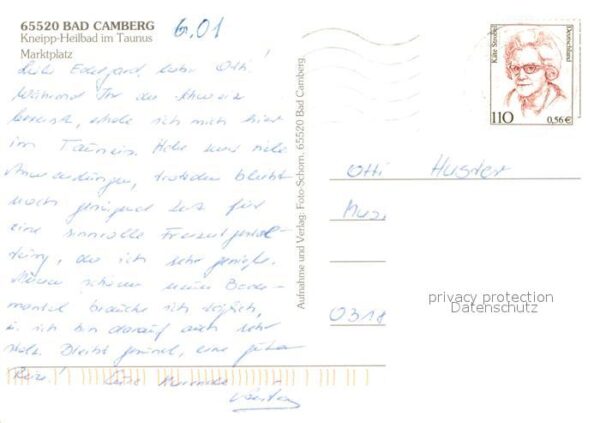 65520 BAD CAMBERG
Kneipp-Heilbad im Taunus
Marktplatz
6.01
Liebe Edelgard, lieber Otti!
Während Ihr die Schweiz
bereist, erhole ich mich hier
im Taunus. Habe zwar viele
Anwendungen, trotzdem bleibt
noch genügend Zeit für
eine sinnvolle Freizeitgestal-
tung, die ich sehr genieße.
Meinen schönen neuen Bade-
mantel brauche ich täglich,
u. ich bin darauf auch sehr
stolz. Bleibt gesund, eine gute
Reise!
Aufnahme und Verlag: Foto-Schorn, 65520 Bad Camberg
Käte Strobel
Deutschland
110
0,56 €
Otti Huster
0318
privacy protection
Datenschutz